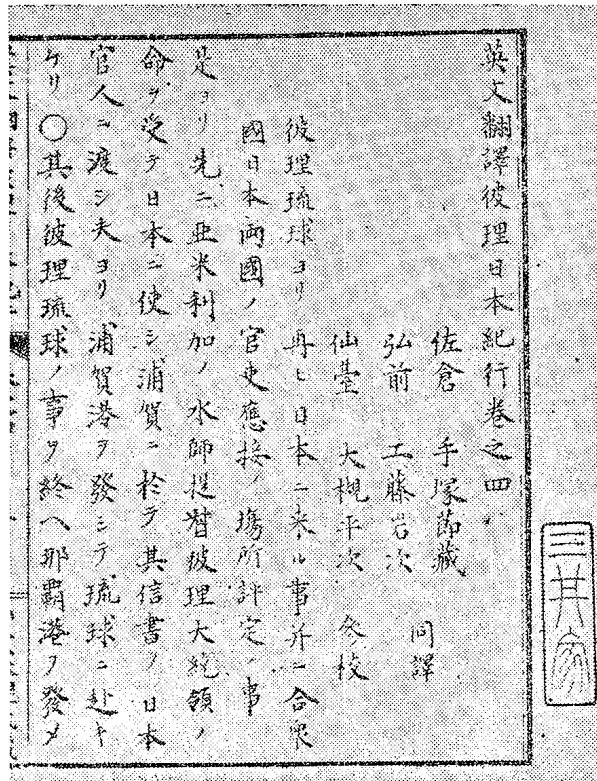 英文翻譯彼理日本紀行巻之四
佐倉 手塚節藏
弘前 工藤岩次 同譯
仙臺 大槻平次 
彼理琉球ヨリ再ヒ日本ニ来ル事并ニ合衆
國日本両國ノ官吏應接ノ塲所評定ノ事
是ヨリ先ニ亜米利加ノ水師提督彼理大統領ノ
命ヲ受テ日本ニ使シ浦賀ニ於テ其信書ヲ日本
官人ニ渡シ夫ヨリ浦賀港ヲ發シテ琉球ニ赴キ
ケリ〇其後彼理琉球ノ事ヲ終ヘ那覇港ヲ發メ